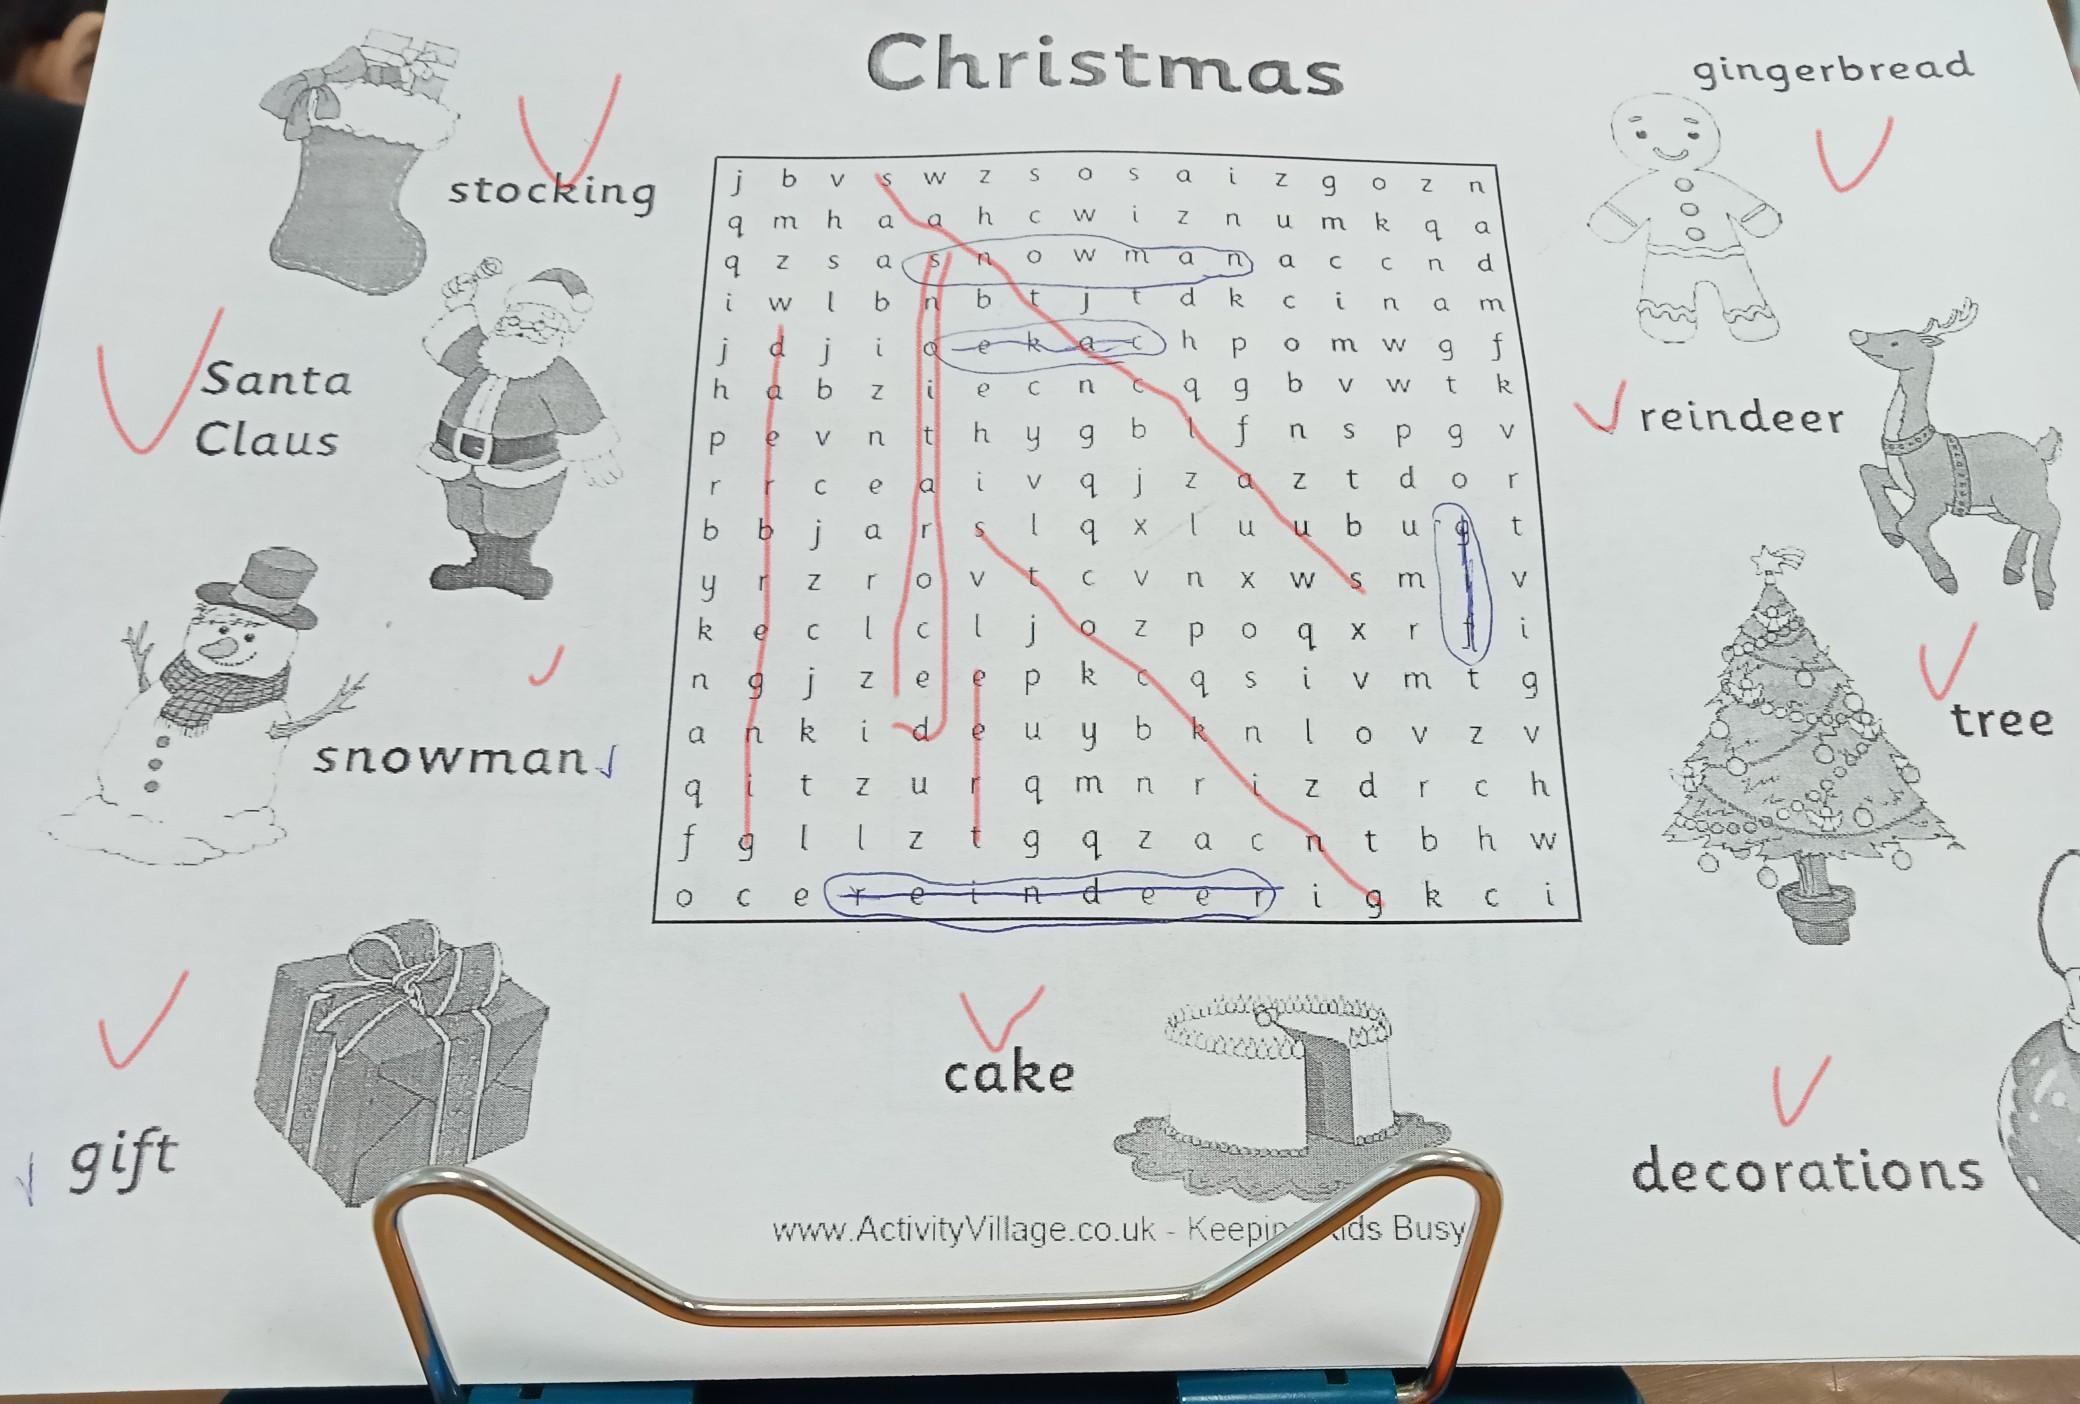 Christmas
gingerbread
stocking
Santa
Claus
reindeer
snowman
tree
gift
cake
decorations
j b v s w z s o s a i z g o z n
q m h a a h c w i z n u m k q a
q z s a s n o w m a n a c c n d
i w l b n b t j t d k c i n a m
j d j i o e k a c h p o m w g f
h a b z i e c n c q g b v w t k
p e v n t h y g b l f n s p g v
r r c e a i v q j z a z t d o r
b b j a r s l q x l u u b u g t
y r z r o v t c v n x w s m i v
k e c l c l j o z p o q x r f i
n g j z e e p k c q s i v m t g
a n k i d e u y b k n l o v z v
q i t z u r q m n r i z d r c h
f g l l z t g q z a c n t b h w
o c e r e i n d e e r i g k c i
www.ActivityVillage.co.uk - Keeping Kids Busy